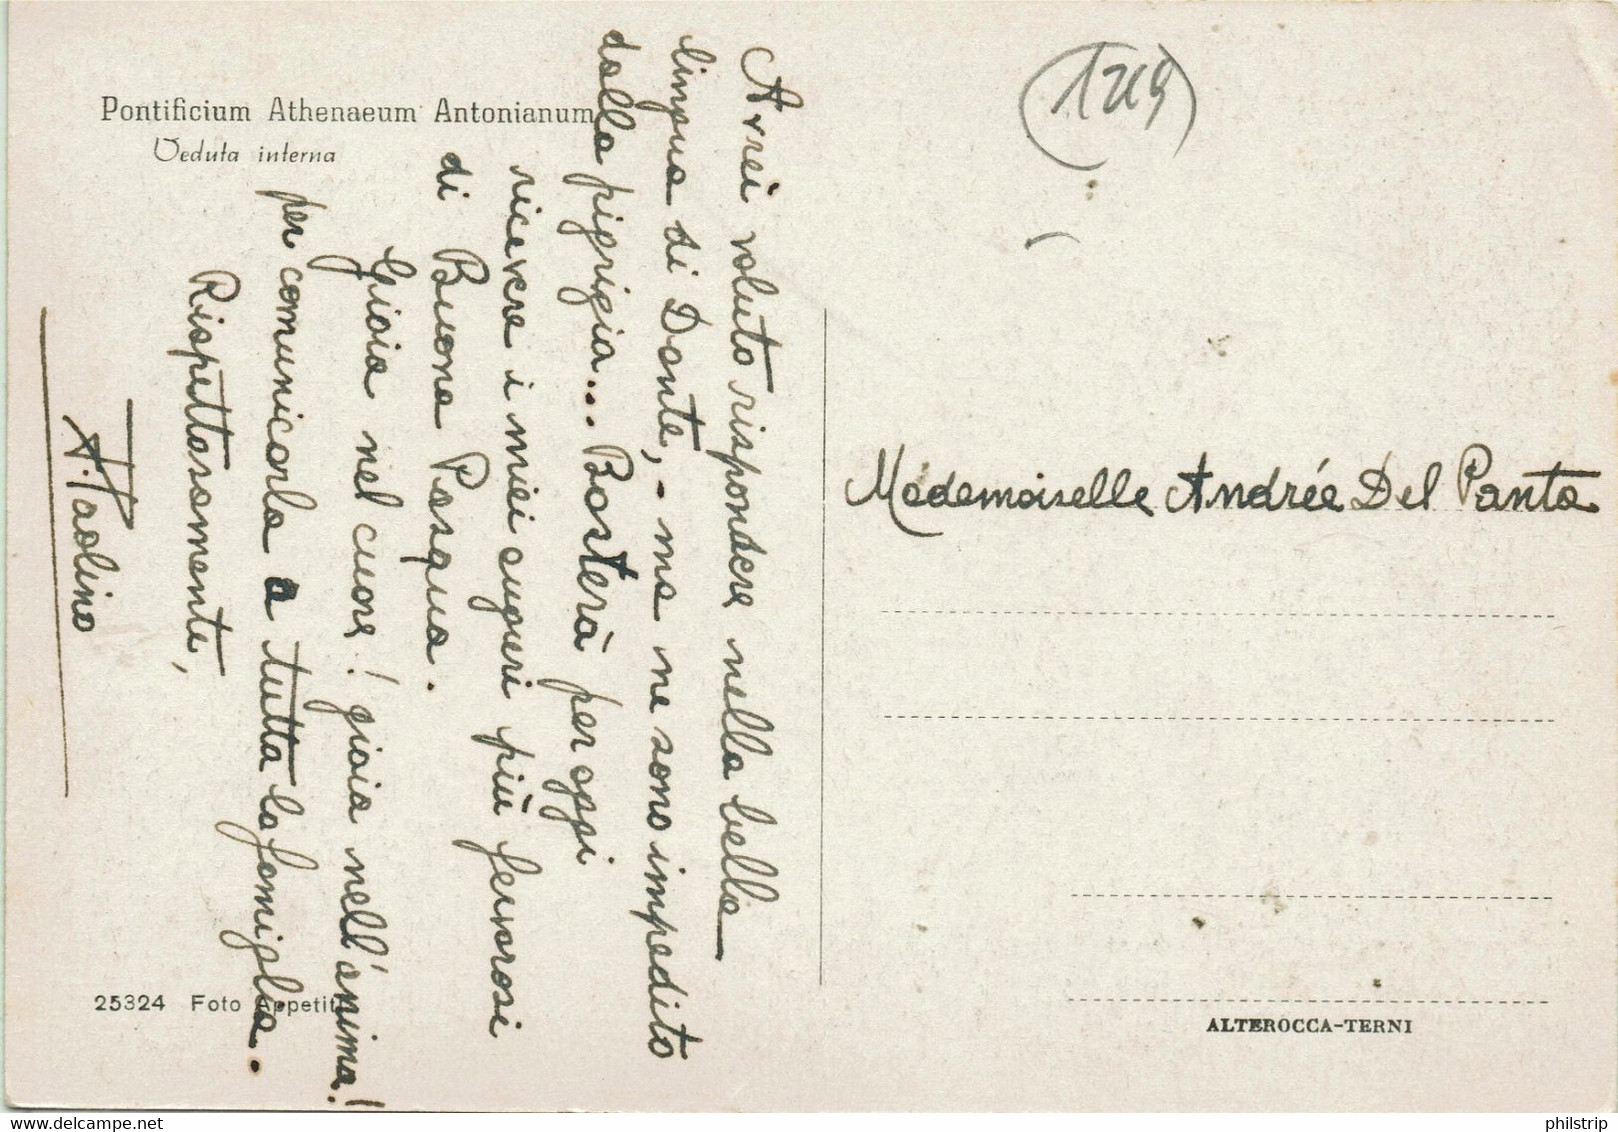 Pontificium Athenaeum Antonianum
Veduta interna
Avrei voluto rispondere nella bella
lingua di Dante, - ma ne sono impedito
dalla pigrizia... Basterà per oggi
ricevere i miei auguri più fervorosi
di Buona Pasqua.
Gioia nel cuore! gioia nell'anima!
per comunicarla a tutta la famiglia.
Rispettosamente,
Paolino
25324 Foto Appetiti
Mademoiselle Andrée Del Panta
ALTEROCCA-TERNI
philstrip